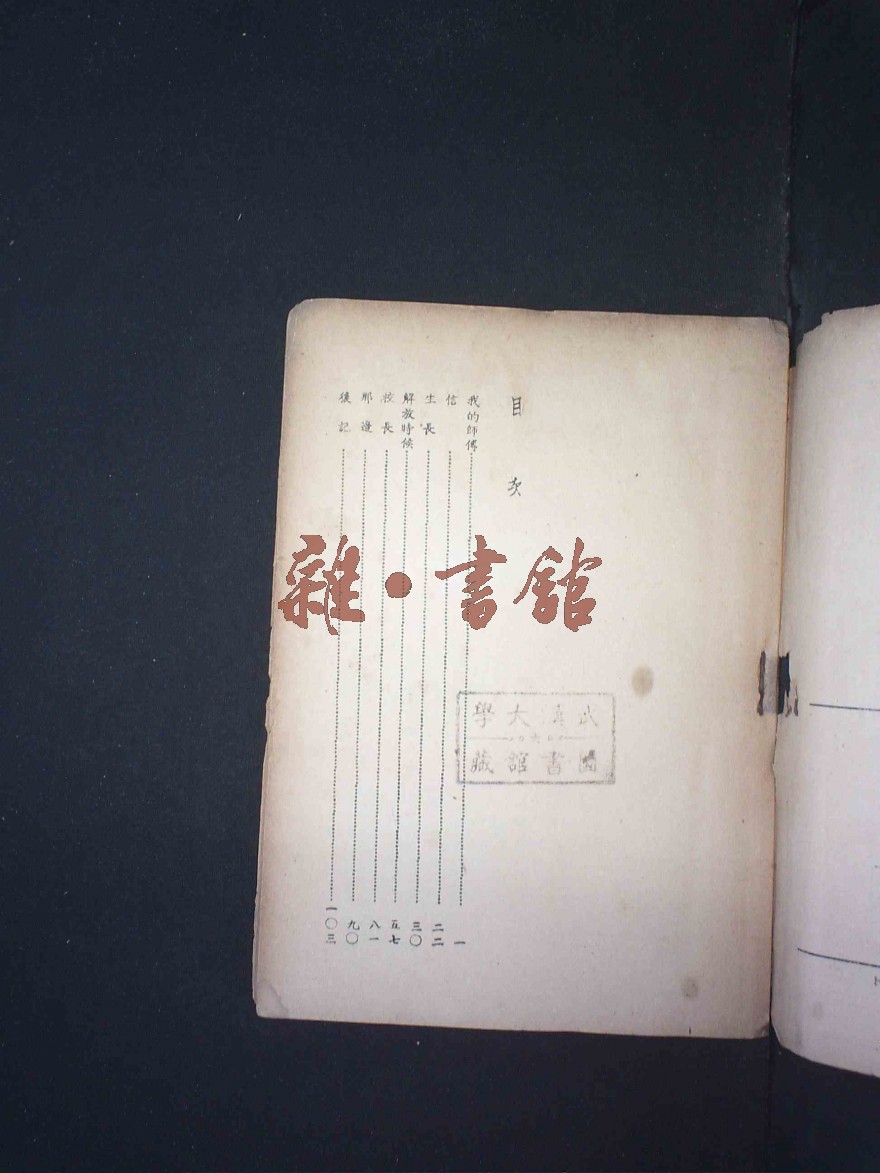 目次
我的師傅……一
信……二二
生長……三〇
解放時候……五七
校長……八一
那邊……九〇
後記……一〇三
雜•書館
武漢大學
圖書館藏